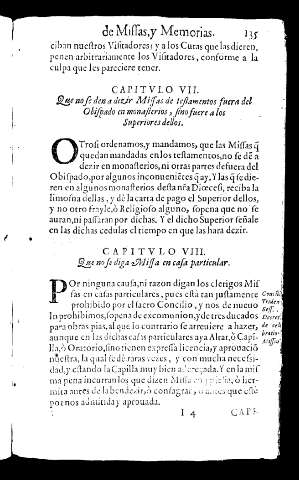 de Missas, y Memorias. 135
ciban nuestros Visitadores: y a los Curas que las dieren,
penen arbitrariamente los Visitadores, conforme a la
culpa que les pareciere tener.
CAPITVLO VII.
Que no se den a dezir Missas de testamentos fuera del
Obispado en monasterios, sino fuere a los
Superiores dellos.
OTrosi ordenamos, y mandamos, que las Missas q̄
quedan mandadas en los testamentos, no se dē a
dezir en monasterios, ni otras partes defuera del
Obispado, por algunos inconueniētes q̄ ay, Y las q̄ se die-
ren en algunos monasterios desta nr̄a Diocesi, reciba la
limosna dellas, y dè la carta de pago el Superior dellos,
y no otro frayle, ò Religioso alguno, sopena que no se
auran, ni passaràn por dichas. Y el dicho Superior señale
en las dichas cedulas el tiempo en que las hara dezir.
CAPITVLO VIII.
Que no se diga Missa en casa particular.
POr ninguna causa, ni razon digan los clerigos Mis-
sas en casas particulares, pues està tan justamente
prohibido por el sacro Concilio, y nos de nueuo
lo prohibimos, sopena de excomunion, y de tres ducados
para obras pias, al que lo contrario se atreuiere a hazer,
aunque en las dichas casas particulares aya Altar, ò Capi-
lla, ò Oratorio, sino tienen expressa licencia, y aprouaciō
nuestra, la qual se dè raras vezes, y con mucha necessi-
dad, y estando la Capilla muy bien adereçada. Y en la mis
ma pena incurran los que dizen Missa en yglesia, ò her-
mita antes de la bendezir, ò consagrar, o antes que estè
por nos admitida y aprouada.
I 4 CAPI-
Conciliū
Triden.
Sess.
Decret.
de cele
bratio.
Missæ